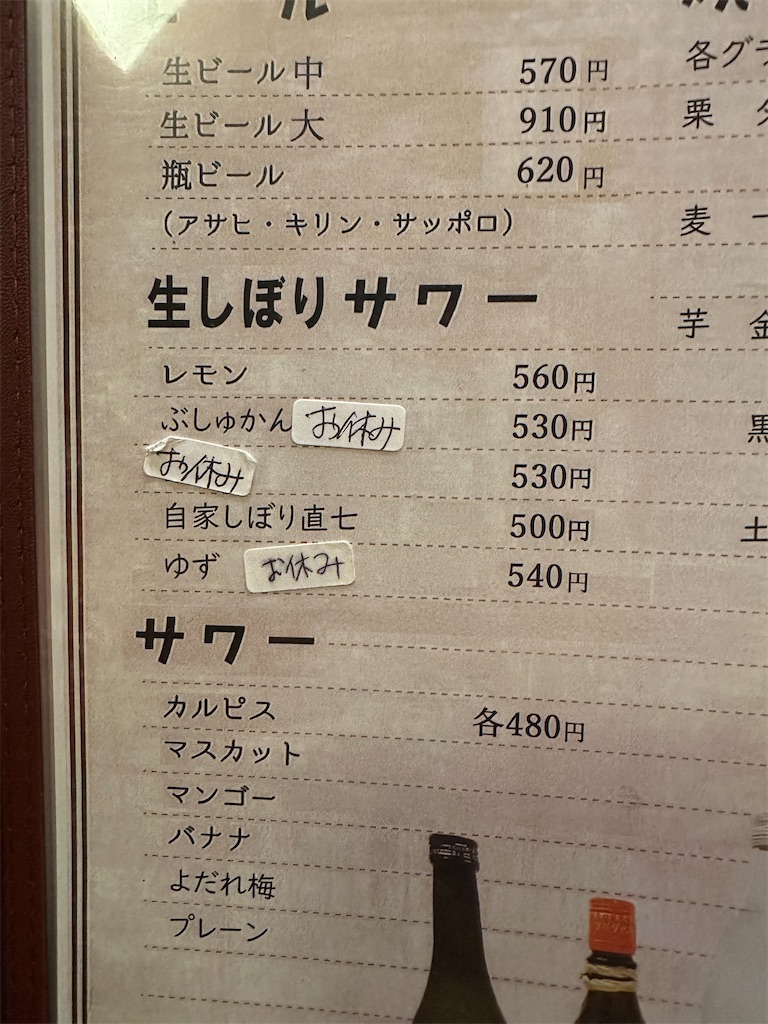 ール
生ビール 中 570円
生ビール 大 910円
瓶ビール 620円
(アサヒ・キリン・サッポロ)
生しぼりサワー
レモン 560円
ぶしゅかん お休み 530円
お休み 530円
自家しぼり直七 500円
ゆず お休み 540円
サワー
カルピス 各480円
マスカット
マンゴー
バナナ
よだれ梅
プレーン
各グラ
栗
麦 一
芋 金
黒
土